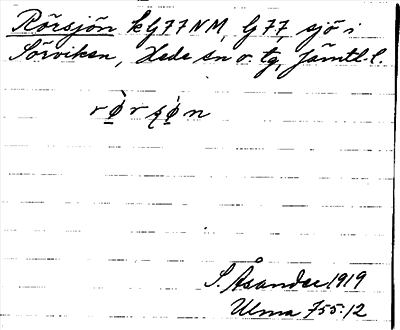 Rörsjön k G77 NM, G77, sjö i
Sörviken, Hede sn o. tg, Jämtl. l.
rø̀rʂø̀n
S. Åsander 1919
Ulma 755:12